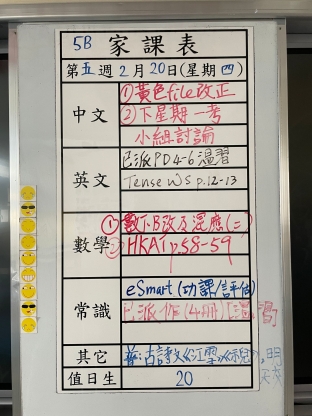 5B 家課表
第五週2月20日(星期四)
中文
①黃色file改正
②下星期一考
小組討論
英文
已派PD4-6溫習
Tense WS p.12-13
數學
①數下B改及混應(二)
②HKAT p.58-59
常識
eSmart (功課/評估)
已派作(4冊)溫習
其它
普:古詩文《江雪》
值日生
20